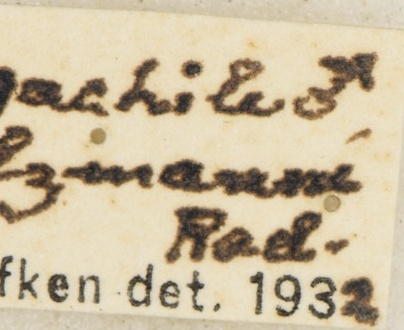 gachile ♂
lzmanni
Rad.
fken det. 1932